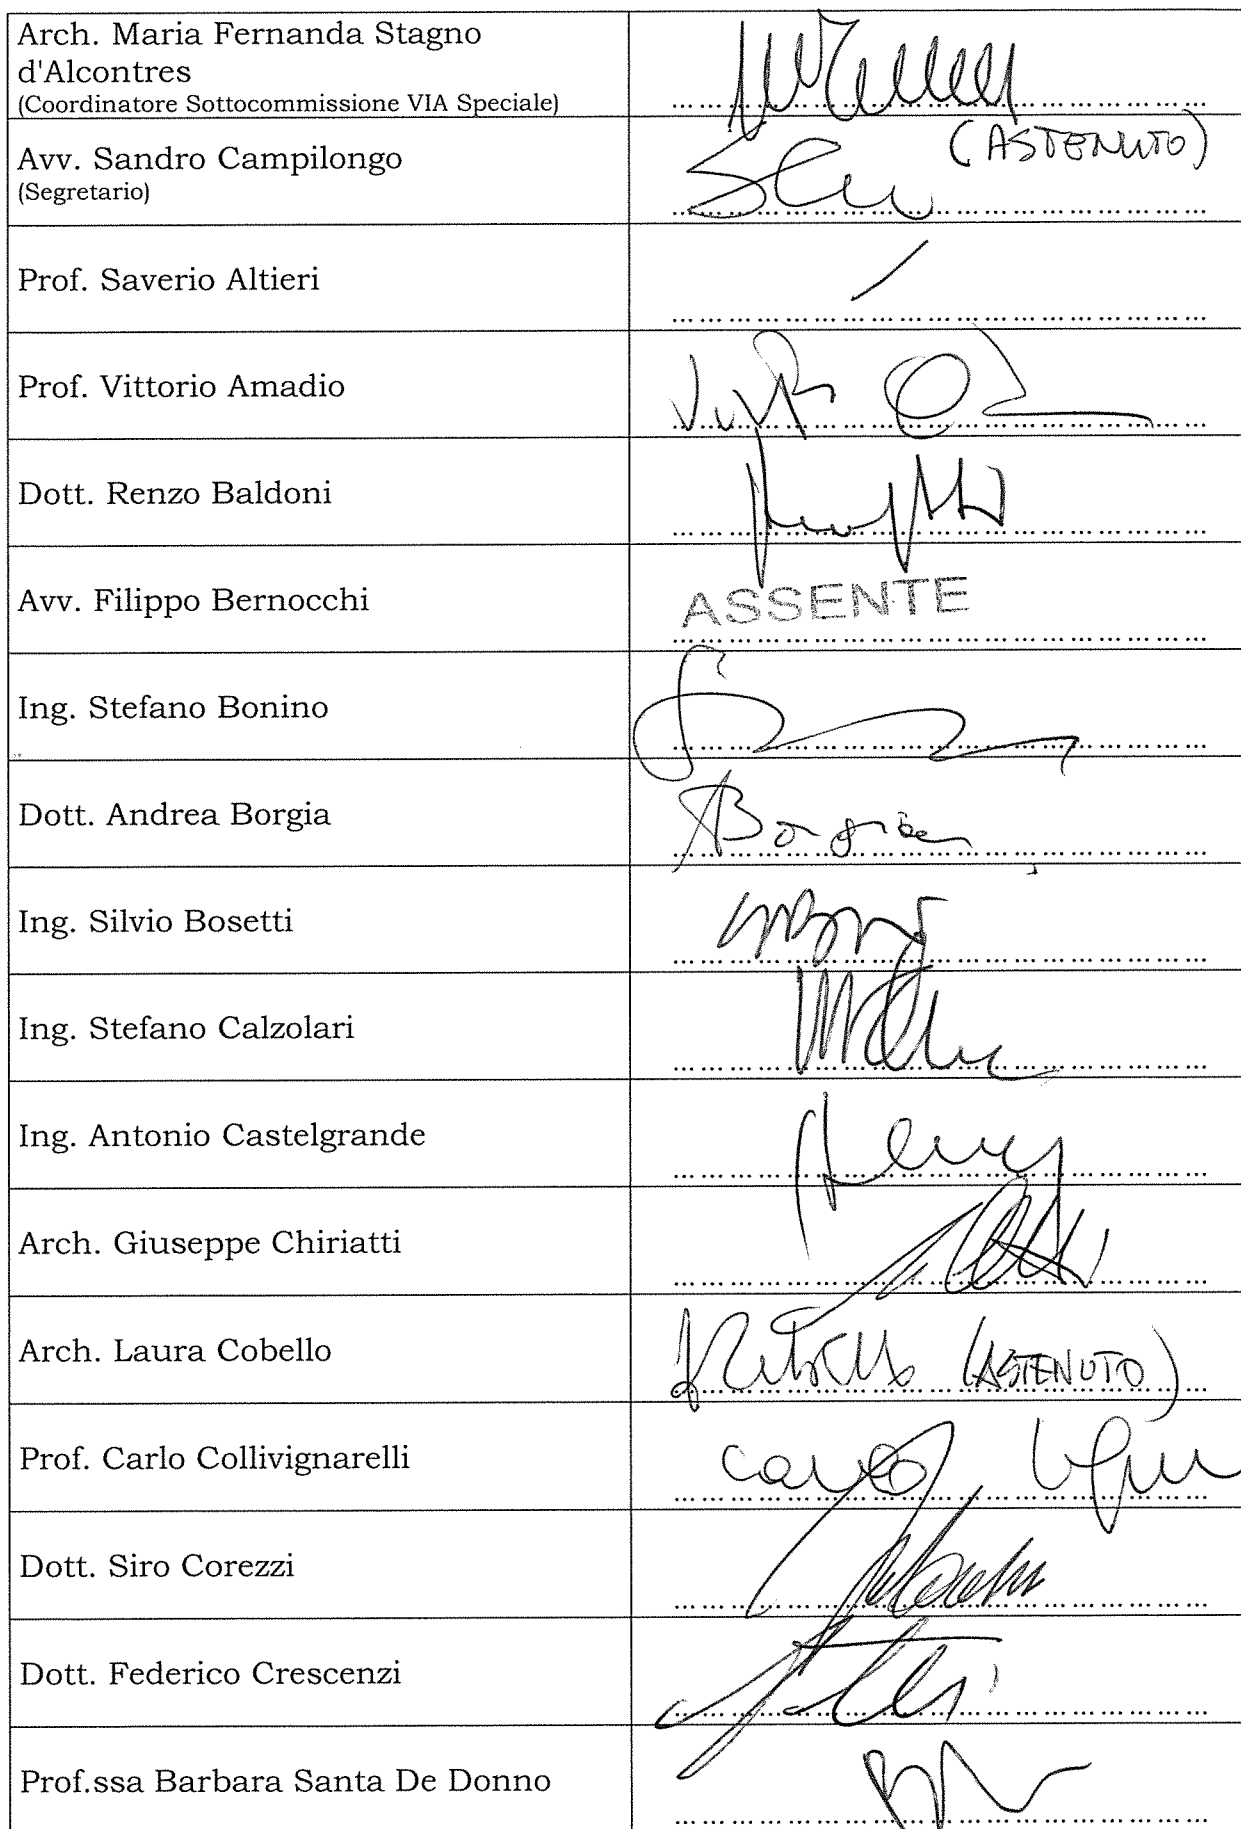 Arch. Maria Fernanda Stagno
d'Alcontres
(Coordinatore Sottocommissione VIA Speciale)
Avv. Sandro Campilongo (ASTENUTO)
(Segretario)
Prof. Saverio Altieri
Prof. Vittorio Amadio
Dott. Renzo Baldoni
Avv. Filippo Bernocchi ASSENTE
Ing. Stefano Bonino
Dott. Andrea Borgia
Ing. Silvio Bosetti
Ing. Stefano Calzolari
Ing. Antonio Castelgrande
Arch. Giuseppe Chiriatti
Arch. Laura Cobello (ASTENUTO)
Prof. Carlo Collivignarelli
Dott. Siro Corezzi
Dott. Federico Crescenzi
Prof.ssa Barbara Santa De Donno